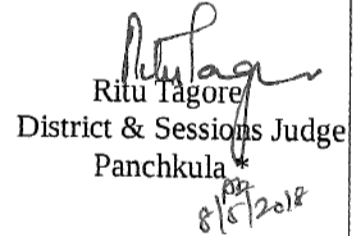 Ritu Tagore
Ritu Tagore
District & Sessions Judge
Panchkula *
8/5/2018